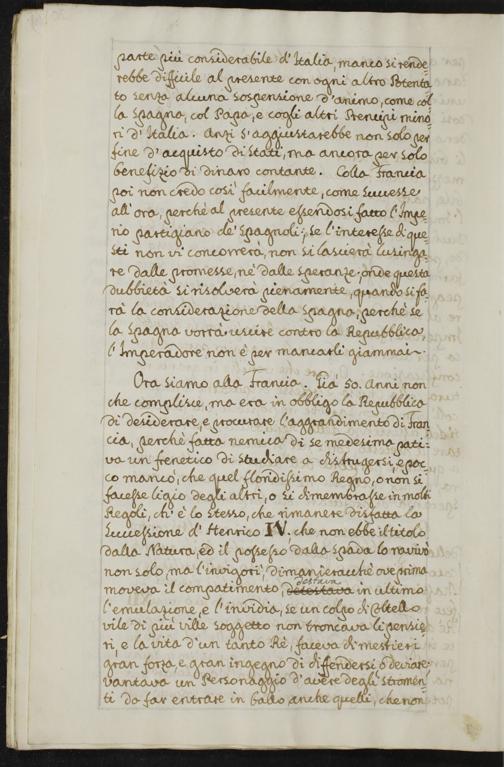 parte più considerabile d'Italia, manco si rende=
rebbe difficile al presente con ogni altro Potenta=
to senza alcuna sospensione d'animo, come col=
la Spagna, col Papa, e cogli altri Prencipi mino=
ri d'Italia. Anzi s'aggiustarebbe non solo per
fine d'acquisto di Stati, ma ancora per solo
benefizio di dinaro contante. Colla Francia
poi non credo così facilmente, come successe
all'ora, perchè al presente essendosi fatto l'Impe=
rio partigiano de' Spagnoli; se l'interesse di que=
sti non vi concorrerà, non si lascierà lusinga=
re dalle promesse, nè dalle speranze; onde questa
dubbietà si risolverà pienamente, quando si fa=
rà la considerazione della Spagna, perchè se
la Spagna vorrà uscire contro la Repubblica
l'Imperadore non è per mancarli giammai.
Ora siamo alla Francia. Già 50. Anni non
che complisse, ma era in obbligo la Repubblica
di desiderare, e procurare l'aggrandimento di Fran=
cia, perchè fatta nemica di se medesima pati=
va un frenetico di studiare a distrugersi, e poc=
co mancò, che quel floridissimo Regno, o non si
facesse ligio degli altri, o si dimembrasse in molti
Regoli, ch'è lo stesso, che rimanere disfatta. La
successione d'Henrico IV. che non ebbe il titolo
dalla Natura, ed il possesso dalla spada lo ravivò
non solo, ma l'invigorì, dimanierachè ove prima
moveva il compatimento, detestava destava in ultimo
l'emulazione, e l'invidia, se un colpo di Coltello
vile di più ville soggetto non troncava li pensie=
ri, e la vita d'un tanto Rè, faceva di mestieri
gran forza, e gran ingegno di diffendersi o deviare;
vantava un Personaggio d'avere degli stromen=
ti da far entrare in ballo anche quelli, che non